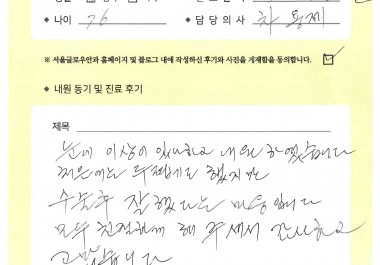 • 나이 76 • 담당의사 차흥제
※ 서울글로우안과 홈페이지 및 블로그 내에 작성하신 후기와 사진을 게재함을 동의합니다. ☑
• 내원 동기 및 진료 후기
제목
눈에 이상이 있나하고 내원 하였습니다
처음에는 했지만
수술후 잘했다는 마음입니다
모두 친절하게 해 주셔서 감사하고
고맙습니다